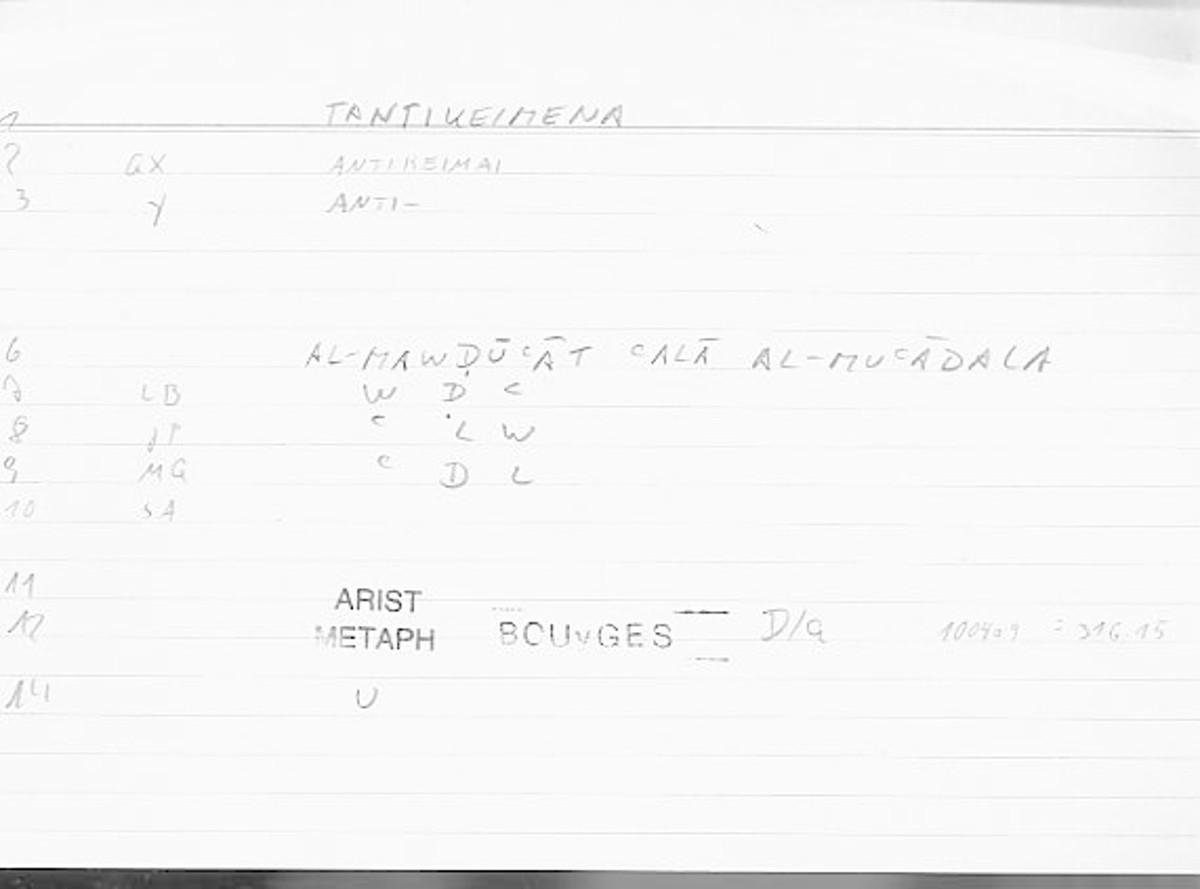 1 TANTIKEIMENA
2 GX ANTIKEIMAI
3 Y ANTI-
6 AL-MAWḌŪʿĀT ʿALĀ AL-MUʿĀDALA
7 LB W Ḍ ʿ
8 ʿ L W
9 MG ʿ D L
10 SA
11 ARIST
12 METAPH BOUYGES D/a 1004a9 = 316.15
14 U